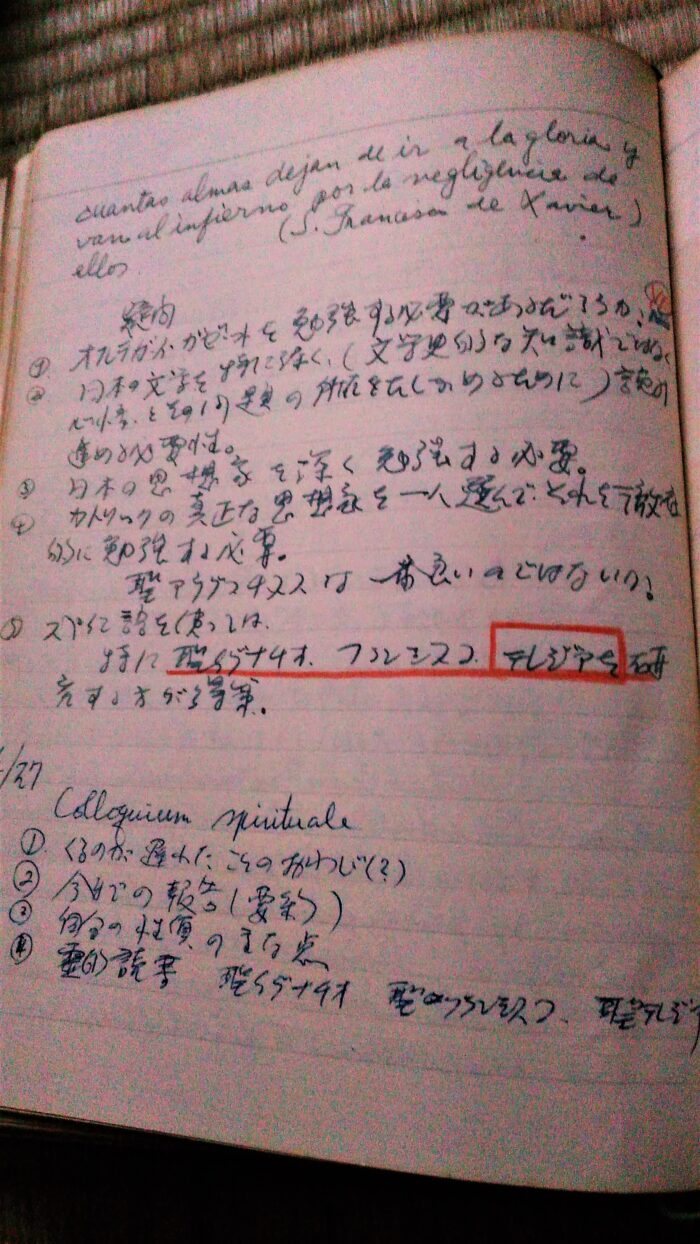 cuantas almas dejan de ir a la gloria y
van al infierno por la negligencia de
ellos. (S. Francisco de Xavier)
疑問
① オルテガ・イ・ガセットを勉強する必要があるだろうか?
② 日本の文学を特に (文学史的な知識ではなく
心情とその問題の所在をたしかめるために) 読み
進める必要性。
③ 日本の思想家を深く勉強する必要。
④ カトリックの真正な思想家を一人選んで、それを徹底
的に勉強する必要。
聖アウグスチヌスは一番良いのではないか?
⑤ スペイン語を使っては、
特に聖イグナチオ、フランシスコ、テレジアを研
究する方が得策。
/27
Colloquium spirituale
① くるのが遅れたことのおわび(?)
② 今までの報告(要約)
③ 自分の性質の主な点
④ 霊的読書 聖イグナチオ 聖フランシスコ、聖テレジア